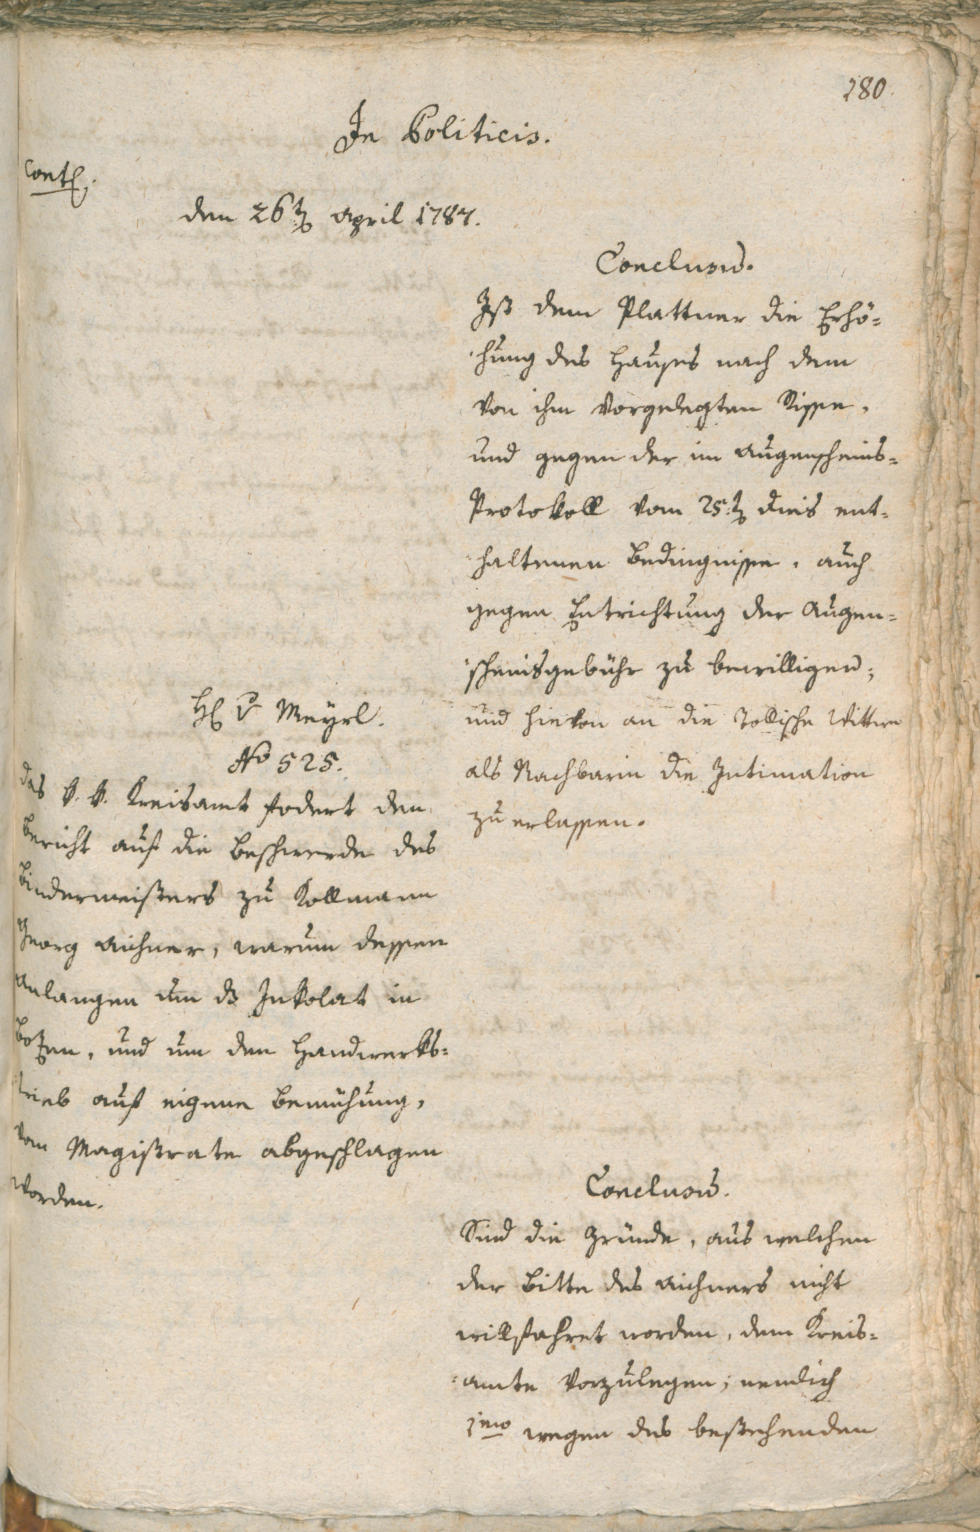 280
In Politicis.
Cont.
den 26t. April 1787.
Conclusū.
Ist dem Plattner die Erhö-
hung des Hauses nach dem
von ihm vorgelegten Risse,
und gegen der im Augenscheins-
Protokoll vom 25.t dies ent-
haltenen Bedingnisse, auch
gegen Entrichtung der Augen-
scheinsgebühr zu bewilligen;
und hievon an die Zollische Wittwe
als Nachbarin die Intimation
zu erlassen.
H. v Meyrl.
No 525.
Das k. k. Kreisamt fodert den
Bericht auf die Beschwerde des
Bindermeisters zu Kollmann
Georg Aichner, warum dessen
Anlangen um ds Inkolat in
Botzen, und um den Handwerks-
trieb auf eigene Bemühung,
vom Magistrate abgeschlagen
worden.
Conclusū.
Sind die Gründe, aus welchen
der Bitte des Aichners nicht
willfahret worden, dem Kreis-
amte vorzulegen; nemlich
1mo wegen des bestehenden